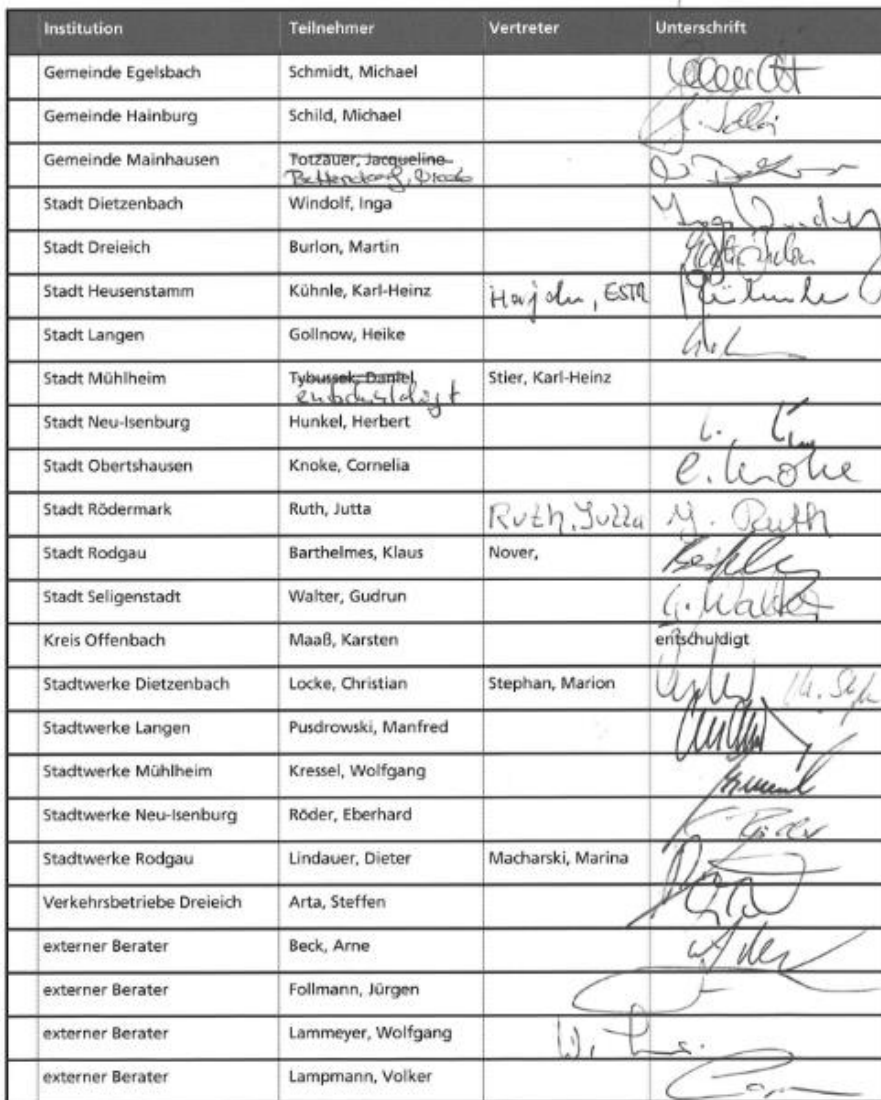 Institution Teilnehmer Vertreter Unterschrift
Gemeinde Egelsbach Schmidt, Michael
Gemeinde Hainburg Schild, Michael
Gemeinde Mainhausen Totzauer, Jacqueline
Stadt Dietzenbach Windolf, Inga
Stadt Dreieich Burlon, Martin
Stadt Heusenstamm Kühnle, Karl-Heinz
Stadt Langen Gollnow, Heike
Stadt Mühlheim Tybussek, Daniel Stier, Karl-Heinz
entschuldigt
Stadt Neu-Isenburg Hunkel, Herbert
Stadt Obertshausen Knoke, Cornelia C. Knoke
Stadt Rödermark Ruth, Jutta Ruth, Jutta J. Ruth
Stadt Rodgau Barthelmes, Klaus Nover,
Stadt Seligenstadt Walter, Gudrun G. Walter
Kreis Offenbach Maaß, Karsten entschuldigt
Stadtwerke Dietzenbach Locke, Christian Stephan, Marion
Stadtwerke Langen Pusdrowski, Manfred
Stadtwerke Mühlheim Kressel, Wolfgang
Stadtwerke Neu-Isenburg Röder, Eberhard
Stadtwerke Rodgau Lindauer, Dieter Macharski, Marina
Verkehrsbetriebe Dreieich Arta, Steffen
externer Berater Beck, Arne
externer Berater Follmann, Jürgen
externer Berater Lammeyer, Wolfgang
externer Berater Lampmann, Volker